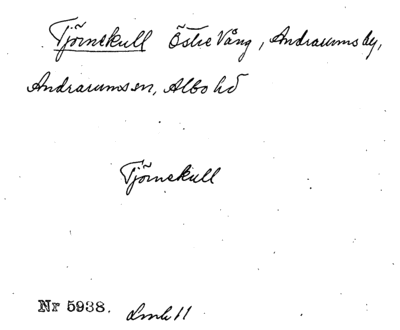 Tjörnekull Östre Vång, Andrarums by,
Andrarums sn, Albo hd
Tjörnekull
Nr 5938. Lmk 11